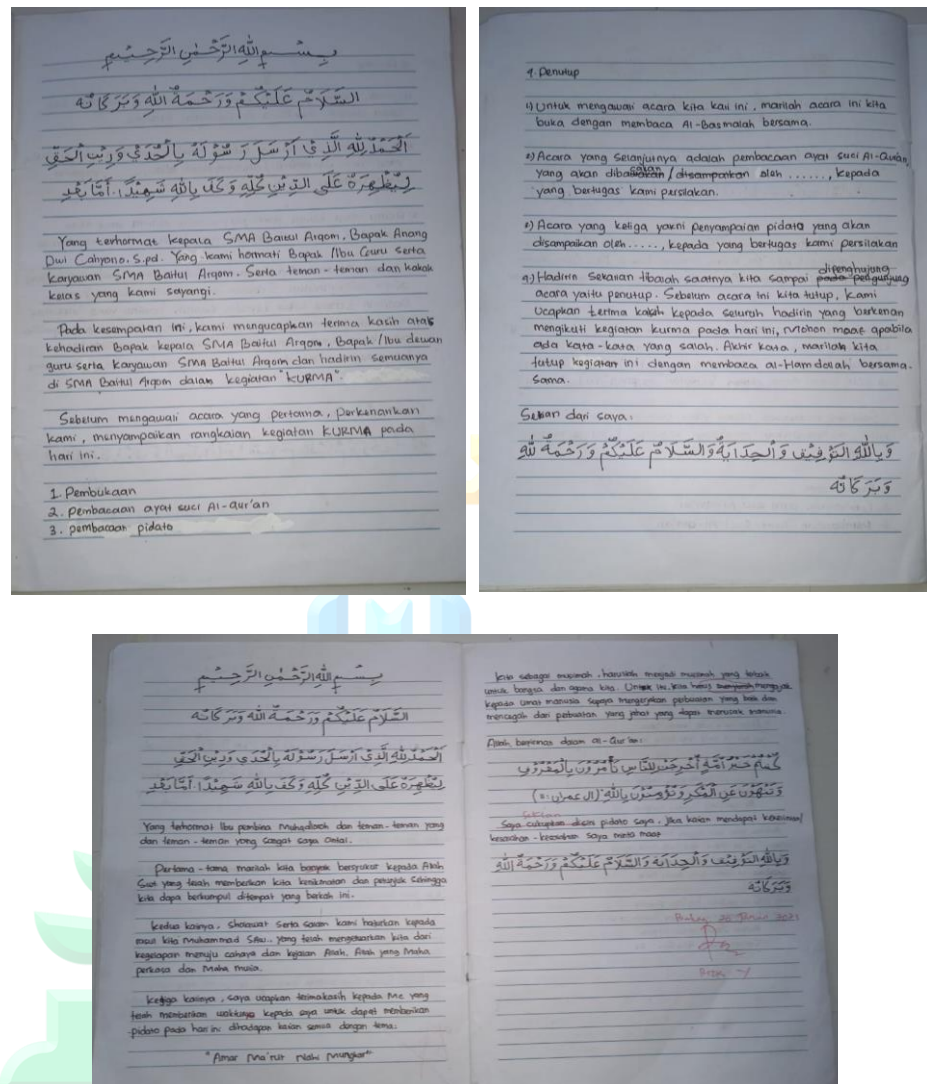 بِسْــــمِ اللهِ الرَّحْمٰنِ الرَّحِيْــمِ
السَّلَامُ عَلَيْكُمْ وَرَحْمَةُ اللهِ وَبَرَكَاتُهُ
اَلْحَمْدُ لِلّٰهِ الَّذِيْ اَرْسَلَ رَسُوْلَهُ بِالْحُدَي وَدِيْنِ الْحَقِّ
لِيُظْهِرَهُ عَلَى الدِّيْنِ كُلِّهِ وَكَفَ بِاللهِ شَهِيْدًا. أَمَّا بَعْدُ
Yang terhormat kepala SMA Baitul Arqom, Bapak Anang
Dwi Cahyono. S.pd. Yang kami hormati Bapak /Ibu Guru serta
Karyawan SMA Baitul Arqom. Serta teman-teman dan kakak
kelas yang kami sayangi.
Pada kesempatan ini, kami mengucapkan terima kasih atas
kehadiran Bapak kepala SMA Baitul Arqom, Bapak /Ibu dewan
guru serta Karyawan SMA Baitul Arqom dan hadirin semuanya
di SMA Baitul Arqom dalam kegiatan "KURMA".
Sebelum mengawali acara yang pertama, perkenankan
kami, menyampaikan rangkaian kegiatan KURMA pada
hari ini.
1. Pembukaan
2. pembacaan ayat suci Al-Qur'an
3. pembacaan pidato
4. Penutup
1) Untuk mengawali acara kita kali ini, marilah acara ini kita
buka dengan membaca Al-Basmalah bersama.
2) Acara yang selanjutnya adalah pembacaan ayat suci Al-Qur'an,
yang akan dibacakan / disampaikan oleh ......, kepada
yang bertugas kami persilakan.
3) Acara yang ketiga yakni penyampaian pidato yang akan
disampaikan oleh ....., kepada yang bertugas kami persilakan
4) Hadirin sekalian tibalah saatnya kita sampai dipenghujung
acara yaitu penutup. Sebelum acara ini kita tutup, kami
ucapkan terima kasih kepada seluruh hadirin yang berkenan
mengikuti kegiatan kurma pada hari ini, mohon maaf apabila
ada kata-kata yang salah. Akhir kata, marilah kita
tutup kegiatan ini dengan membaca al-Hamdalah bersama-
sama.
Sekian dari saya.
وَبِاللهِ التَّوْفِيْق وَالْحِدَايَةُ وَالسَّلَامُ عَلَيْكُمْ وَرَحْمَةُ للهِ
وَبَرَكَاتُهُ
بِسْــــمِ اللهِ الرَّحْمٰنِ الرَّحِيْــمِ
السَّلَامُ عَلَيْكُمْ وَرَحْمَةُ اللهِ وَبَرَكَاتُهُ
اَلْحَمْدُ لِلّٰهِ الَّذِيْ اَرْسَلَ رَسُوْلَهُ بِالْحُدَي وَدِيْنِ الْحَقِّ
لِيُظْهِرَهُ عَلَى الدِّيْنِ كُلِّهِ وَكَفَ بِاللهِ شَهِيْدًا. أَمَّا بَعْدُ
Yang terhormat Ibu pembina Muhadloroh dan teman-teman yang
dan teman-teman yang sangat saya cintai.
Pertama-tama marilah kita banyak bersyukur kepada Allah
Swt yang telah memberikan kita kenikmatan dan petunjuk sehingga
kita dapa berkumpul ditempat yang berkah ini.
Kedua kalinya, sholawat serta salam kami haturkan kepada
nabi kita Muhammad Saw, yang telah mengeluarkan kita dari
kegelapan menuju cahaya dan kejalan Allah. Allah yang Maha
perkasa dan Maha mulia.
Ketiga kalinya, saya ucapkan terimakasih kepada Mc yang
telah memberikan waktunya kepada saya untuk dapat memberikan
pidato pada hari ini dihadapan kalian semua dengan tema:
"Amar Ma'ruf Nahi Mungkar"
kita sebagai muslimah, haruslah menjadi muslimah yang terbaik
untuk bangsa dan agama kita. Untuk itu, kita harus mengajak
kepada umat manusia supaya mengerjakan perbuatan yang baik dan
mencegah dari perbuatan yang jahat yang dapat merusak manusia.
Allah berfirman dalam al-Qur'an:
كُنْتُمْ خَيْرَ اُمَّةٍ اُخْرِجَتْ لِلنَّاسِ تَأْمُرُوْنَ بِالْمَعْرُوْفِ
وَتَنْهَوْنَ عَنِ الْمُنْكَرِ وَتُؤْمِنُوْنَ بِاللهِ (ال عمران:
Saya cukupkan sekian pidato saya, jika kalian mendapat
kesalahan-kesalahan saya minta maaf
وَبِاللهِ التَّوْفِيْق وَالْحِدَايَةُ وَالسَّلَامُ عَلَيْكُمْ وَرَحْمَةُ اللهِ
وَبَرَكَاتُهُ